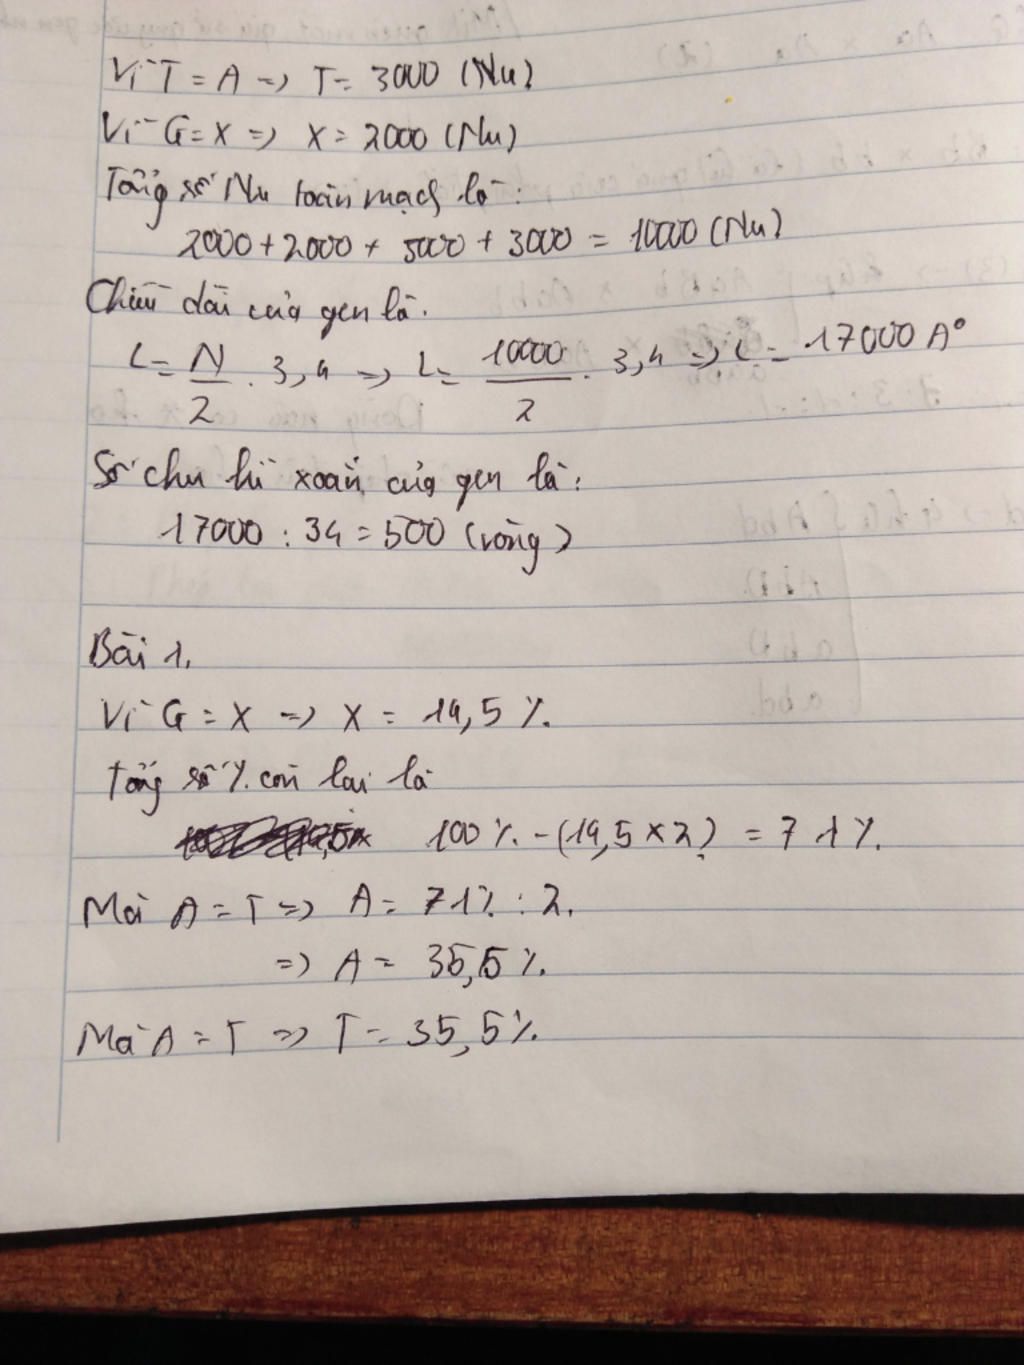 Vì T = A => T = 3000 (Nu)
Vì G = X => X = 2000 (Nu)
Tổng số Nu toàn mạch là:
2000 + 2000 + 3000 + 3000 = 10000 (Nu)
Chiều dài của gen là.
L = N/2 . 3,4 => L = 10000/2 . 3,4 => L = 17000 A°
Số chu kì xoắn của gen là:
17000 : 34 = 500 (vòng)
Bài 1.
Vì G = X => X = 14,5 %.
Tổng số % còn lại là
100 % - (14,5 x 2) = 71 %.
Mà A = T => A = 71% : 2.
=> A = 35,5 %.
Mà A = T => T = 35,5 %.